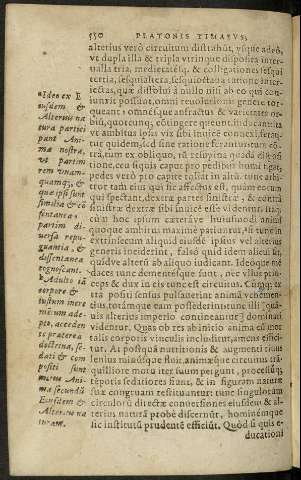 550 PLATONIS TIMAEVS,
alterius verò circuitum distrahūt, vsque adeò,
vt dupla illa & tripla vtrinque disposita inter-
ualla tria, medietatesq́; & colligationes sesqui
tertia, sesquialtera, sesquioctaua ratione inter-
iectas, quæ dissolui à nullo nisi ab eo qui con-
iunxit possint, omni reuolutionis genere tor-
queant: omnésque anfractus & varietates or-
bis, quotcunq; cōtingere queunt, itiducant: ita
vt ambitus ipsis vix sibi inuicē connexi, feran-
tur quidem, sed sine ratione ferantur: tum cō-
trà, tum ex obliquo,
ceu siquis caput pro pedibus humi figat,
pedes verò pro capite tollat in altū. tunc arbi-
tror tam eius qui sic affectus est, quàm eorum
qui spectant, dextra partes sinistræ, & contrà
sinistræ dextræ sibi inuicē esse videntur. Itaq;
cùm hoc ipsum extrà vel huiusmodi animi
quoque ambitus maximè patiuntur, si tunc in
extrinsecum aliquid eiusdē ipsius vel alterius
generis inciderint, falsò quid idem alicui sit,
quidve alterū ab aliquo iudicant. Ideoque mē
daces tunc dementésque sunt, nec vllus prin-
ceps & dux in eis tunc est circuitus.
ta postis sensus pulsauerint animā
eius, totámque eam possederint: tunc illi quā-
uis alterius imperio contineantur, dominari
videntur. Quas ob res ab initio anima cū mor
tali corporis vinculis includitur, amens effici-
tur. At postquā nutritionis & augmenti riuu
lenius influit, animæque circuitus trā-
quilliore motu iter suum pergunt, procedēsq́;
tēporis sedatiores fiunt, & in figuram naturæ
suæ congruam restituuntur: tunc singulorum
circulorū directæ conuersiones eiusdem & al-
terius naturā probè discernūt, hominémque
sic institutū prudentē efficiūt. Quòd si quis e-
ducationi
Ideo ex E
iusdem &
Alterius na
tura partici
pant Ani-
ma nostræ,
vt partim
rem vnam-
quamq; &
quæ ipsi sint
similia & cō
sentanea:
partim di-
uersa repu-
gnantia, &
dissentanea
cognoscant.
Adulto iā
corpore &
iustum incre
mētum ade-
pto, acceden
te præterea
doctrina, se-
dati & com
positi sunt
motus Ani-
mæ secundū
Eiusdem &
Alterius na
turam.